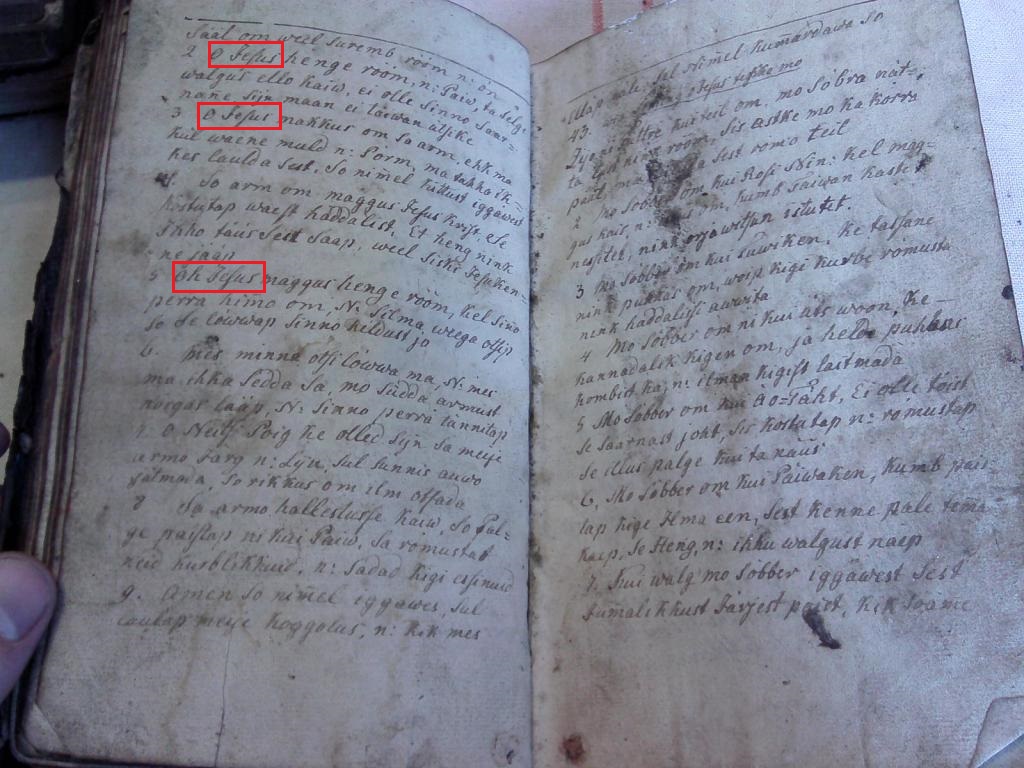 Saal om weel suremb room n: on
2 O Jesus henge room, n: Paiw, ta selge
walgus ello kaiw, ei olle Sinno saar-
nane siin maan ei taewan ütsike
3 O Jesus makkus om sa arm, ehk ma
kül waene muld n: Porm, ma tahha ik-
kes lauluda sest, So nimel kittust iggawest
4. So arm om maggus Jesus Krist, Se
kostutap waest haddalist, Et heng nink
ihho täus sest saap, weel siski Jesuken-
ne jaap
5 Oh Jesus maggus henge room, kel sino
perra himo om, N: Silma, weega otsip
so Se löwwap Sinno heldust jo
6. mes minna otsi löwwa ma, N: mes
ma ihka sedda sa, mo südda armust
norgas lääp, N: Sinno perra tännitap
7. O Neitsi Poig ke olled siin sa meije
armo Jarg n: Liin, sul sunnis auwo
jatmada, So rikkus om ilm otsada
8 Sa armo hallestusse kaiw, So Pal-
ge paistap ni kui Paiw, Sa romustat
neid kurblikkuid, n: Sadad kigi essinuid
9. Amen So nimel iggawes, sul
laulap meije koggodus, n: kik mes
sel Nimel kumardawa so
43.
kui teil om, mo sobra nat-
room, sis astke mo ka korra
sest romo teil
2 Mo Sobber om kui Rosi Nen: kel mag-
gus hais, n: om, kumb taiwan kaste
nink istutet.
3 Mo sobber om kui suwiken, ke taljane
nink puhhas om, woip kigi kurbe romusta
nink haddalisi awwita
4 Mo Sobber om ni kui üts woon, ke
kannadalik kigen om, ja helde puhhas
kombist ka, n: ilman kigist laitmada
5 Mo Sobber om kui Ao-Täht, Ei olle töist
se saarnast joht, sis kostutap n: romustap
se illus palge kui ta naüs
6, Mo Sobber om kui Paiwaken, kumb pais-
tap kige Ilma een, sest kenne pale temma
kaep, Se Heng, n: ihku walgust naep
7. Kui walg mo sobber iggawest Sest
Jumalikkust Jarjest paist, kik Soame